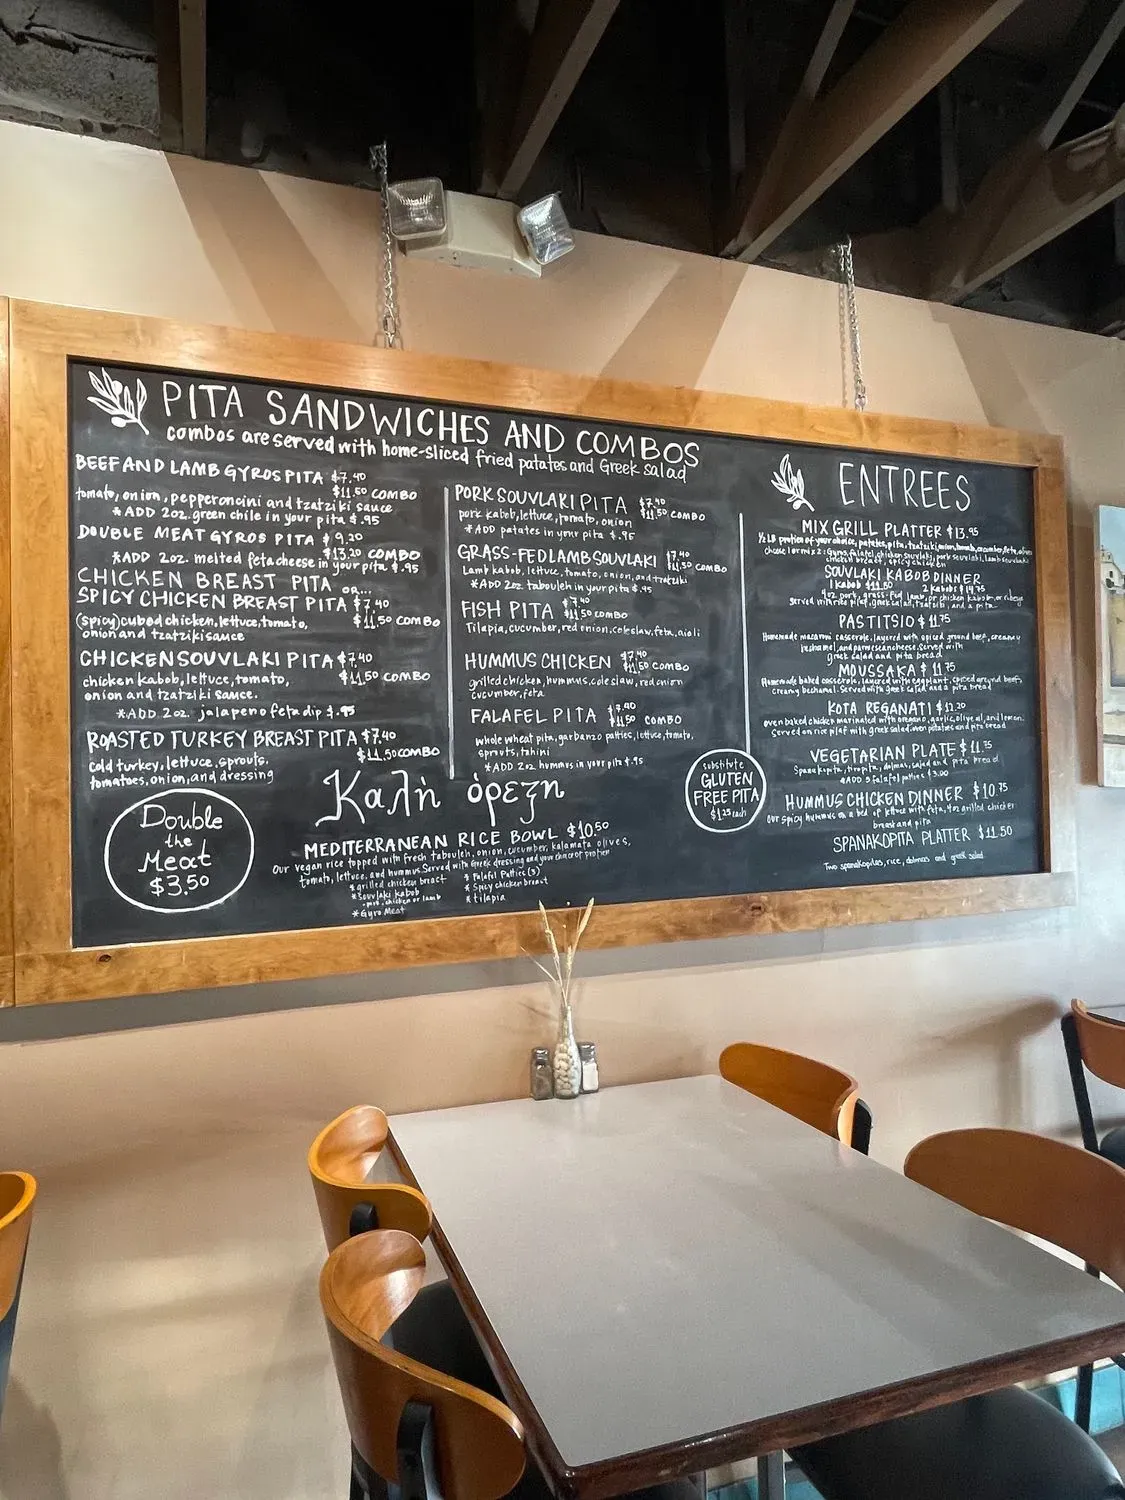 PITA SANDWICHES AND COMBOS
combos are served with home-sliced fried patates and Greek salad
BEEF AND LAMB GYROS PITA $7.40
$11.50 COMBO
tomato, onion, pepperoncini and tzatziki sauce
*ADD 2oz. green chile in your pita $.95
DOUBLE MEAT GYROS PITA $9.20
$13.20 COMBO
*ADD 2oz. melted feta cheese in your pita $.95
CHICKEN BREAST PITA or...
SPICY CHICKEN BREAST PITA $7.40
$11.50 COMBO
(spicy) cubed chicken, lettuce, tomato,
onion and tzatziki sauce
CHICKEN SOUVLAKI PITA $7.40
$11.50 COMBO
chicken kabob, lettuce, tomato,
onion and tzatziki sauce.
*ADD 2oz. jalapeno feta dip $.95
ROASTED TURKEY BREAST PITA $7.40
$11.50 COMBO
cold turkey, lettuce, sprouts,
tomatoes, onion, and dressing
Double
the
Meat
$3.50
PORK SOUVLAKI PITA $7.40
$11.50 COMBO
pork kabob, lettuce, tomato, onion
*ADD patates in your pita $.95
GRASS-FED LAMB SOUVLAKI $7.40
$11.50 COMBO
Lamb kabob, lettuce, tomato, onion, and tzatziki
*ADD 2oz. tabouleh in your pita $.95
FISH PITA $7.40
$11.50 COMBO
Tilapia, cucumber, red onion, coleslaw, feta, aioli
HUMMUS CHICKEN $7.40
$11.50 COMBO
grilled chicken, hummus, coleslaw, red onion
cucumber, feta
FALAFEL PITA $7.40
$11.50 COMBO
whole wheat pita, garbanzo patties, lettuce, tomato,
sprouts, tahini
*ADD 2oz hummus in your pita $.95
Καλή όρεξη
MEDITERRANEAN RICE BOWL $10.50
Our vegan rice topped with fresh tabouleh, onion, cucumber, kalamata olives,
tomato, lettuce, and hummus. Served with Greek dressing and your choice of protein
*grilled chicken breast
*Souvlaki kabob
-pork, chicken or lamb
*Gyro Meat
*Falafel Patties (3)
*Spicy chicken breast
*tilapia
substitute
GLUTEN
FREE PITA
$1.25 each
ENTREES
MIX GRILL PLATTER $13.95
1/2 LB portion of your choice, patates, pita, tzatziki, onion, tomato, cucumber, feta, olives
choose 1 or mix 2: Gyros, falafel, chicken souvlaki, pork souvlaki, lamb souvlaki
chicken breast, spicy chicken
SOUVLAKI KABOB DINNER
1 kabob $11.50 2 kabobs $14.75
4oz pork, grass-fed lamb, or chicken kabob, or ribeye
served with rice pilaf, greek salad, tzatziki, and a pita
PASTITSIO $11.75
Homemade macaroni casserole, layered with spiced ground beef, creamy
bechamel and parmesan cheese. Served with
greek salad and pita bread
MOUSSAKA $11.75
Homemade baked casserole, layered with eggplant, spiced ground beef,
creamy bechamel. Served with greek salad and a pita bread
KOTA REGANATI $11.20
oven baked chicken marinated with oregano, garlic, olive oil, and lemon.
Served on rice pilaf with greek salad, oven potatoes and pita bread
VEGETARIAN PLATE $11.75
Spanakopita, tiropita, dolmas, salad and pita bread
*ADD 3 falafel patties $3.00
HUMMUS CHICKEN DINNER $10.75
Our spicy hummus on a bed of lettuce with feta, 4oz grilled chicken
breast and pita
SPANAKOPITA PLATTER $11.50
Two spanakopitas, rice, dolmas and greek salad